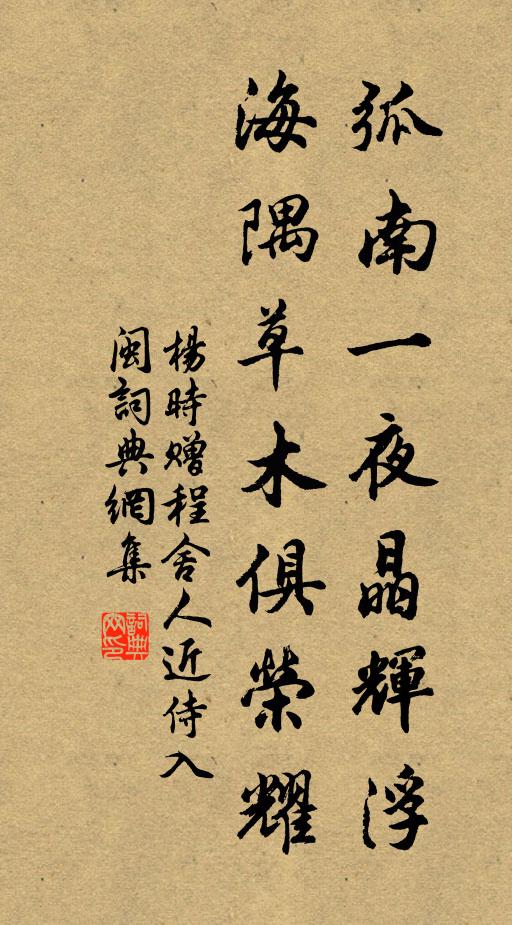 弧南一夜晶輝浮
海隅草木俱榮耀
楊時贈程舍人近侍入
閩詞典網集
詞典網印